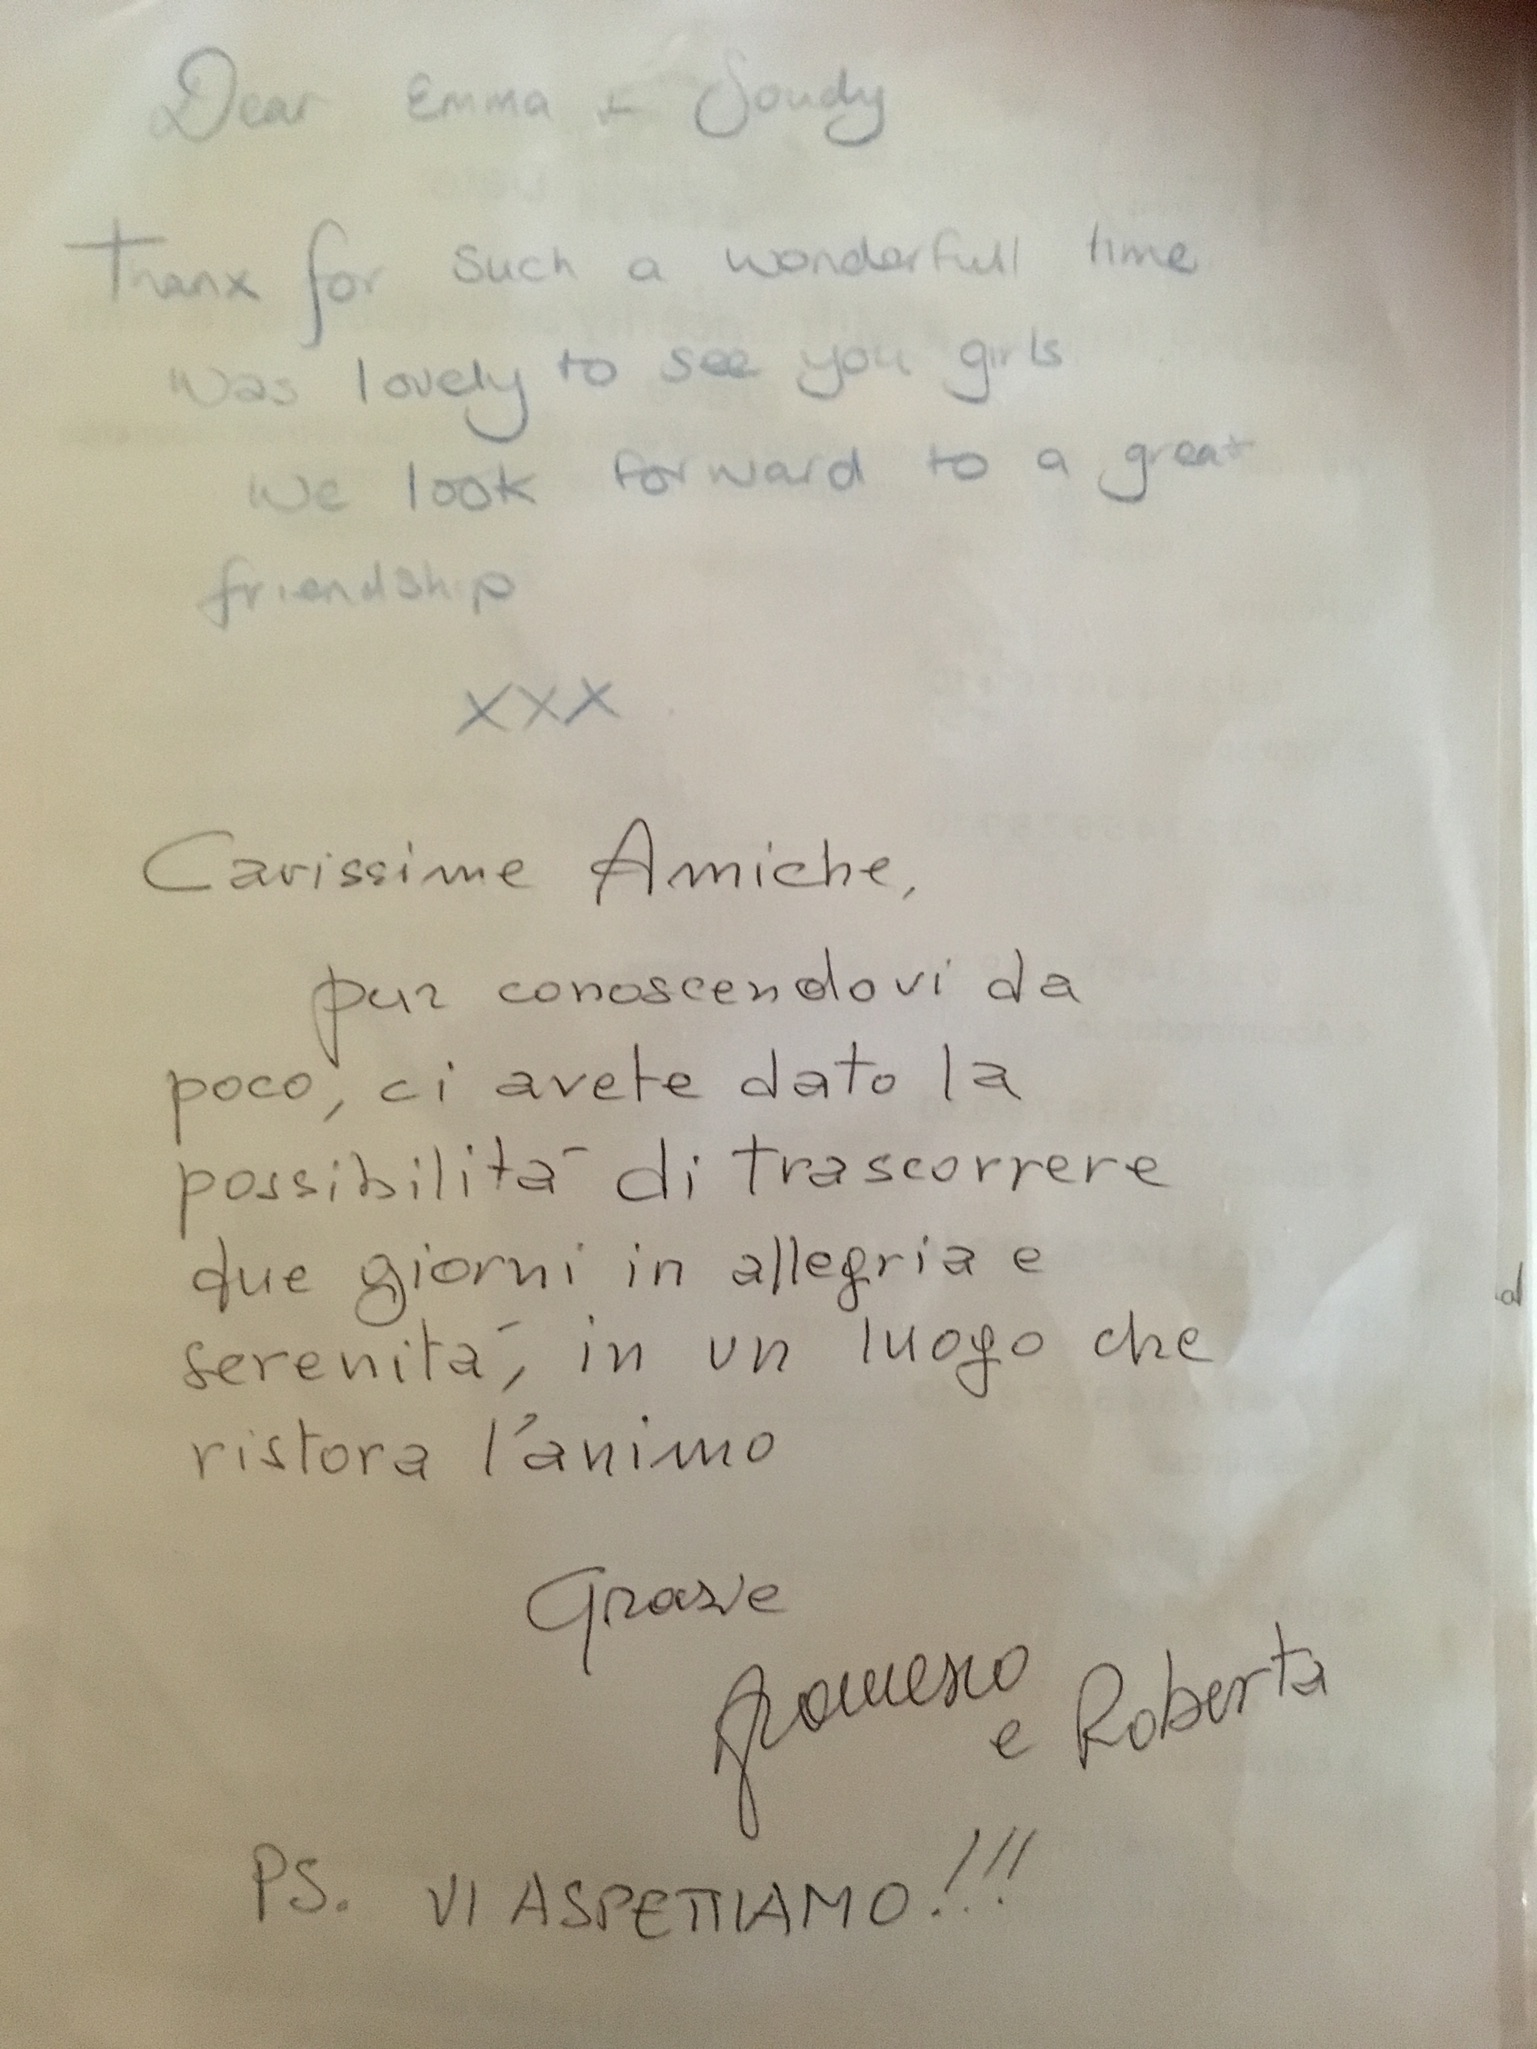 Dear Emma + Soudy
Thanx for such a wonderfull time
was lovely to see you girls
we look forward to a great
friendship
XXX
Carissime Amiche,
pur conoscendovi da
poco, ci avete dato la
possibilità di trascorrere
due giorni in allegria e
serenità, in un luogo che
ristora l'animo
Grazie
Francesco
e Roberta
PS. VI ASPETTIAMO!!!